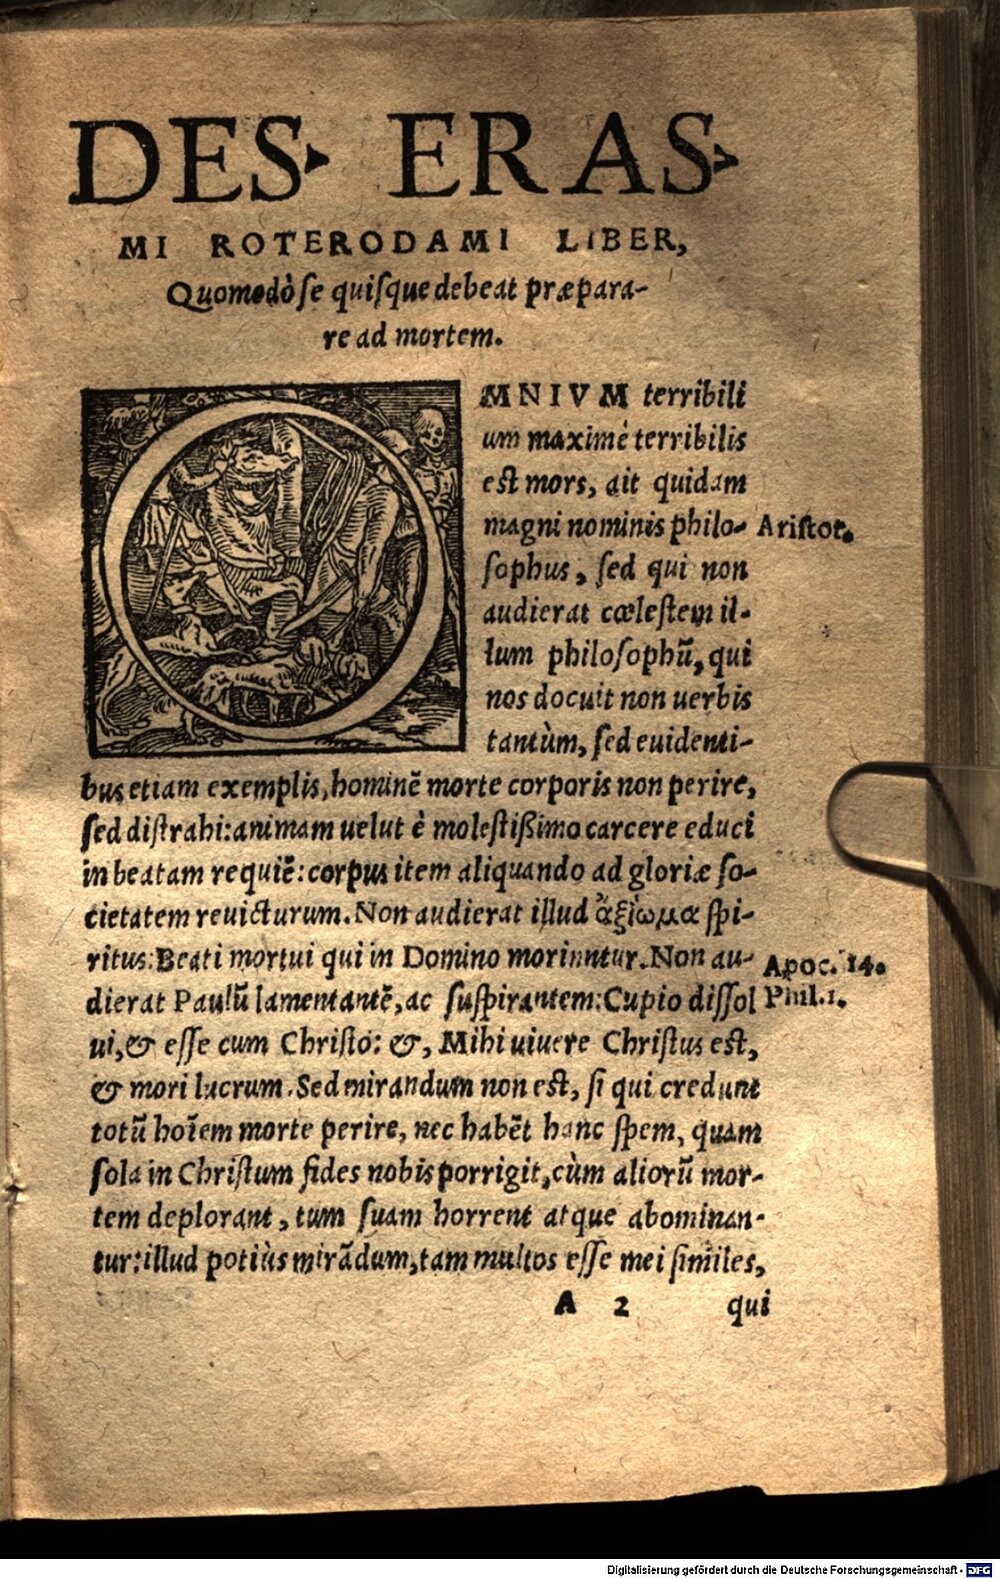 DES. ERAS-
MI ROTERODAMI LIBER,
Quomodò se quisque debeat præpara-
re ad mortem.
OMNIVM terribili
um maximè terribilis
est mors, ait quidam
magni nominis philo-
Aristot.
sophus, sed qui non
audierat cœlestem il-
lum philosophũ, qui
nos docuit non uerbis
tantùm, sed euidenti-
bus etiam exemplis, hominẽ morte corporis non perire,
sed distrahi: animam uelut è molestißimo carcere educi
in beatam requiẽ: corpus item aliquando ad gloriæ so-
cietatem reuicturum. Non audierat illud ἀξίωμα spi-
ritus: Beati mortui qui in Domino moriuntur. Non au-
Apoc. 14.
dierat Paulũ lamentantẽ, ac suspirantem: Cupio dissol
Phil.1.
ui, & esse cum Christo: &, Mihi uiuere Christus est,
& mori lucrum. Sed mirandum non est, si qui credunt
totũ hoĩem morte perire, nec habẽt hanc spem, quam
sola in Christum fides nobis porrigit, cùm aliorũ mor-
tem deplorant, tum suam horrent atque abominan-
tur: illud potiùs mirãdum, tam multos esse mei similes,
A 2 qui
Digitalisierung gefördert durch die Deutsche Forschungsgemeinschaft - DFG